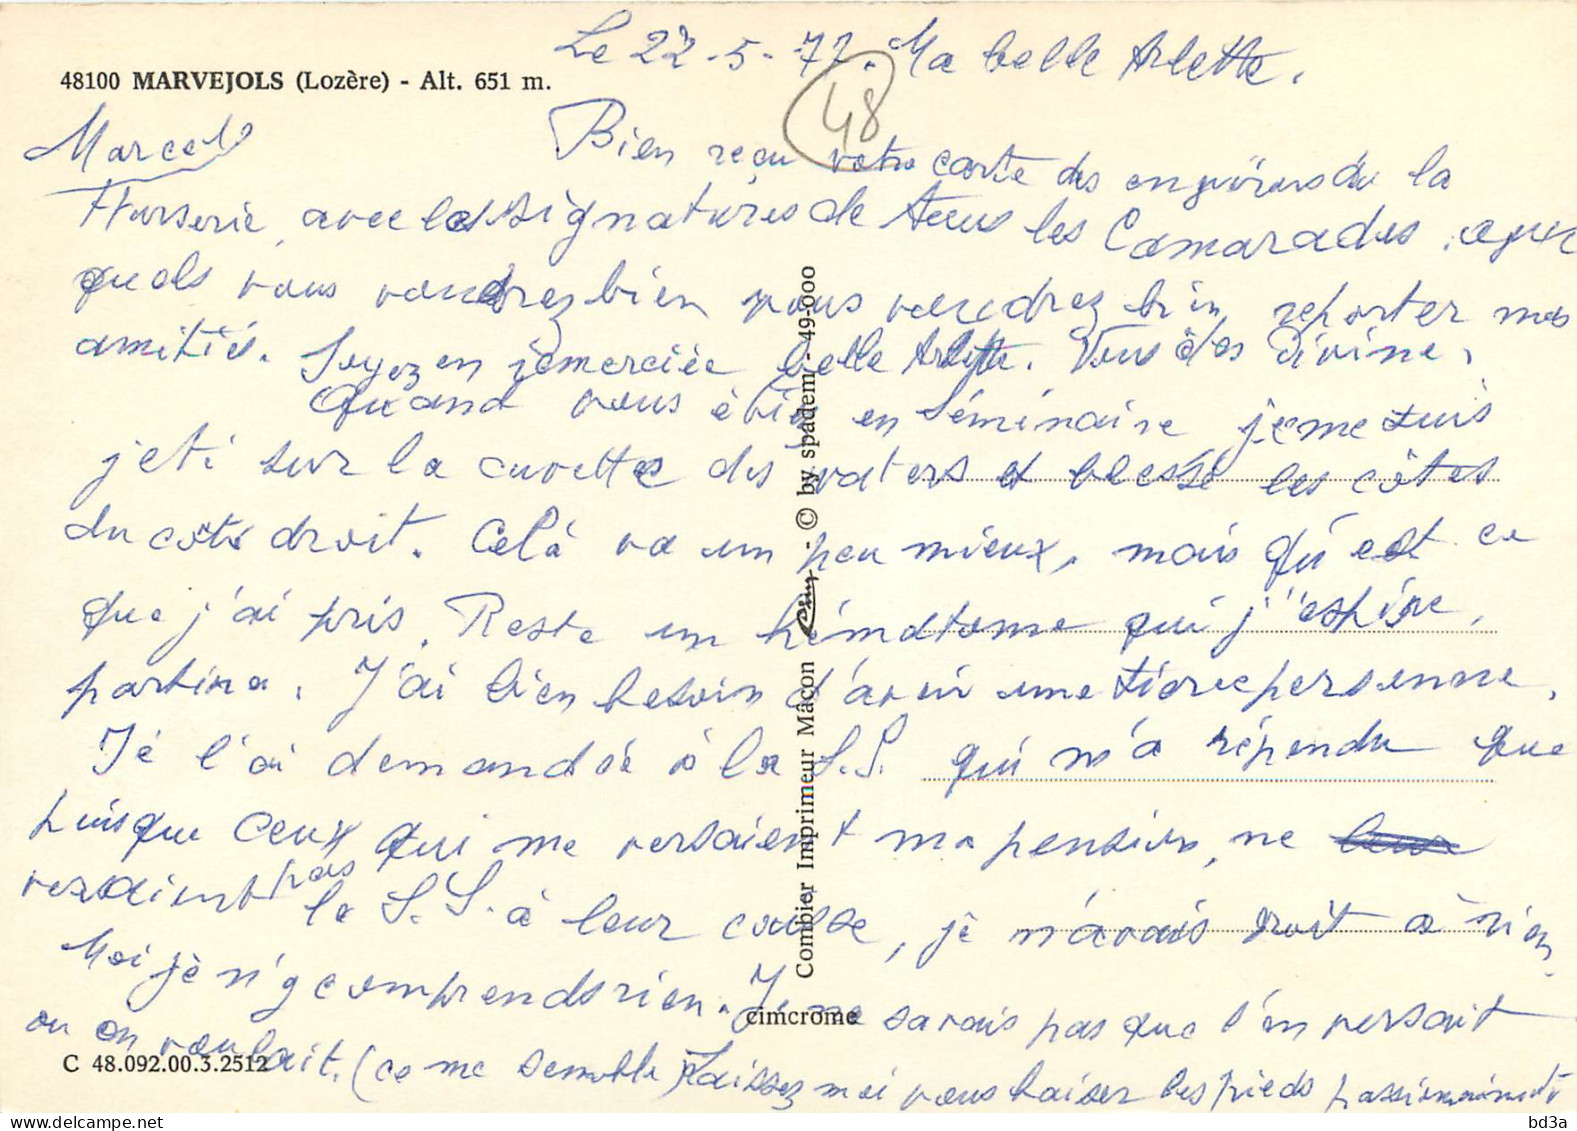 Le 22-5-77. Ma belle Arlette,
48100 MARVEJOLS (Lozère) - Alt. 651 m.
48
Marcel
Bien reçu votre carte des environs de la
avec les signatures de tous les Camarades, aux
quels vous voudrez bien vous voudrez bien reporter mes
amitiés. Soyez en remerciée belle Arlette. Vous êtes divine.
Quand vous étiez en séminaire je me suis
jeté sur la cuvette des waters et blessé les côtes
du côté droit. Celà va un peu mieux, mais qu'est ce
que j'ai pris. Reste un hématome qui j'espère,
partira. J'ai bien besoin d'avoir une tierce personne.
Je l'ai demandée à la S.S. qui m'a répondu que
puisque ceux qui me versaient ma pension, ne
versaient pas la S.S. à leur caisse, je n'avais droit à rien.
Moi je n'y comprends rien. Je ne savais pas que l'on versait
ou on voulait. (ce me semble) Laissez moi vous baiser les pieds passionnément
© by spadem - 49-000
Combier Imprimeur Mâcon Cim
cimcrome
C 48.092.00.3.2512
bd3a